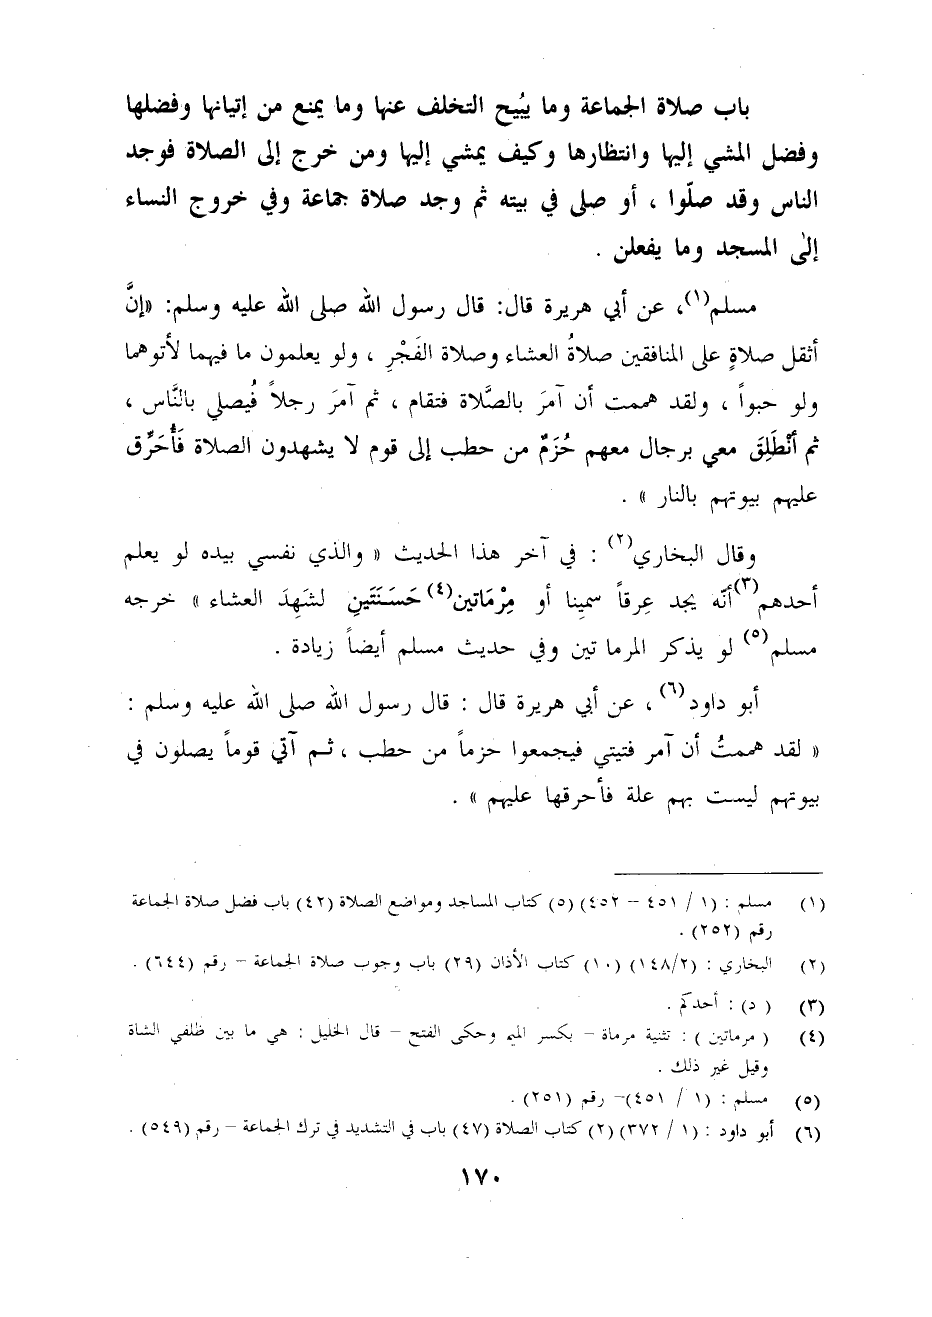 باب صلاة الجماعة وما يُبيح التخلف عنها وما يمنع من إتيانها وفضلها
وفضل المشي إليها وانتظارها وكيف يمشي إليها ومن خرج إلى الصلاة فوجد
الناس وقد صلّوا ، أو صلى في بيته ثم وجد صلاة جماعة وفي خروج النساء
إلى المسجد وما يفعلن .
مسلم(١)، عن أبي هريرة قال: قال رسول الله صلى الله عليه وسلم: «إنَّ
أثقل صلاةٍ على المنافقين صلاةُ العشاء وصلاة الفَجْرِ ، ولو يعلمون ما فيهما لأتوهما
ولو حبواً ، ولقد هممت أن آمرَ بالصَّلاة فتقام ، ثم آمرَ رجلاً فُيصلي بالنَّاس ،
ثم أنْطَلِقَ معي برجال معهم حُزَمٌ من حطب إلى قوم لا يشهدون الصلاة فَأُحَرِّق
عليهم بيوتهم بالنار » .
وقال البخاري(٢) : في آخر هذا الحديث « والذي نفسي بيده لو يعلم
أحدهم(٣)أنّه يجد عِرقاً سمِينا أو مِرْمَاتين(٤)حَسَنَتَينِ لشَهِدَ العشاء » خرجه
مسلم(٥) لو يذكر المرما تين وفي حديث مسلم أيضاً زيادة .
أبو داود(٦)، عن أبي هريرة قال : قال رسول الله صلى الله عليه وسلم :
« لقد هممتُ أن آمر فتيتي فيجمعوا حزماً من حطب ، ثم آتي قوماً يصلون في
بيوتهم ليست بهم علة فأحرقها عليهم » .
(١) مسلم : (١ / ٤٥١ – ٤٥٢) (٥) كتاب المساجد ومواضع الصلاة (٤٢) باب فضل صلاة الجماعة
رقم (٢٥٢) .
(٢) البخاري : (١٤٨/٢) (١٠) كتاب الأذان (٢٩) باب وجوب صلاة الجماعة – رقم (٦٤٤) .
(٣) ( د) : أحدكم .
(٤) ( مرماتين ) : تثنية مرماة – بكسر الميم وحكى الفتح – قال الخليل : هي ما بين ظلفي الشاة
وقيل غير ذلك .
(٥) مسلم : (١ / ٤٥١)– رقم (٢٥١) .
(٦) أبو داود : (١ / ٣٧٢) (٢) كتاب الصلاة (٤٧) باب في التشديد في ترك الجماعة – رقم (٥٤٩) .
١٧٠